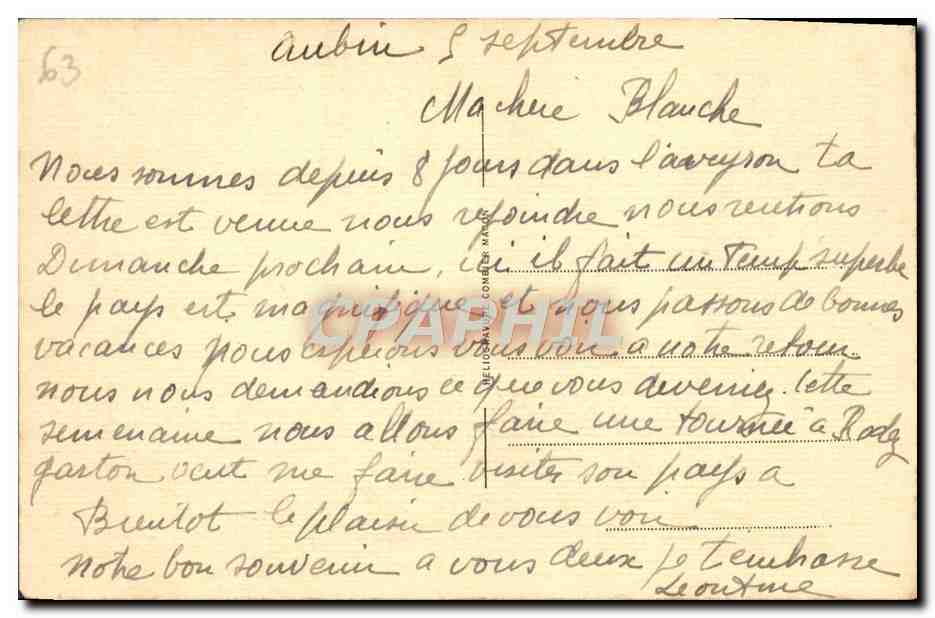 63
aubin 5 septembre
Ma chere Blanche
Nous sommes depuis 8 jours dans l'aveyron ta
lettre est venue nous rejoindre nous rentrons
Dimanche prochain, ici il fait un temp superbe
le pays est magnifique et nous passons de bonnes
vacances nous esperons vous voir a notre retour
nous nous demandions ce que vous deveniez. Cette
semenaine nous allons faire une tournée à Rodez
gaston veut me faire visiter son pays a
Bientot le plaisir de vous voir
notre bon souvenir a vous deux je t'embrasse
Leontine
HELIOGRAVURE COMBIER MACON
CPAPHIL